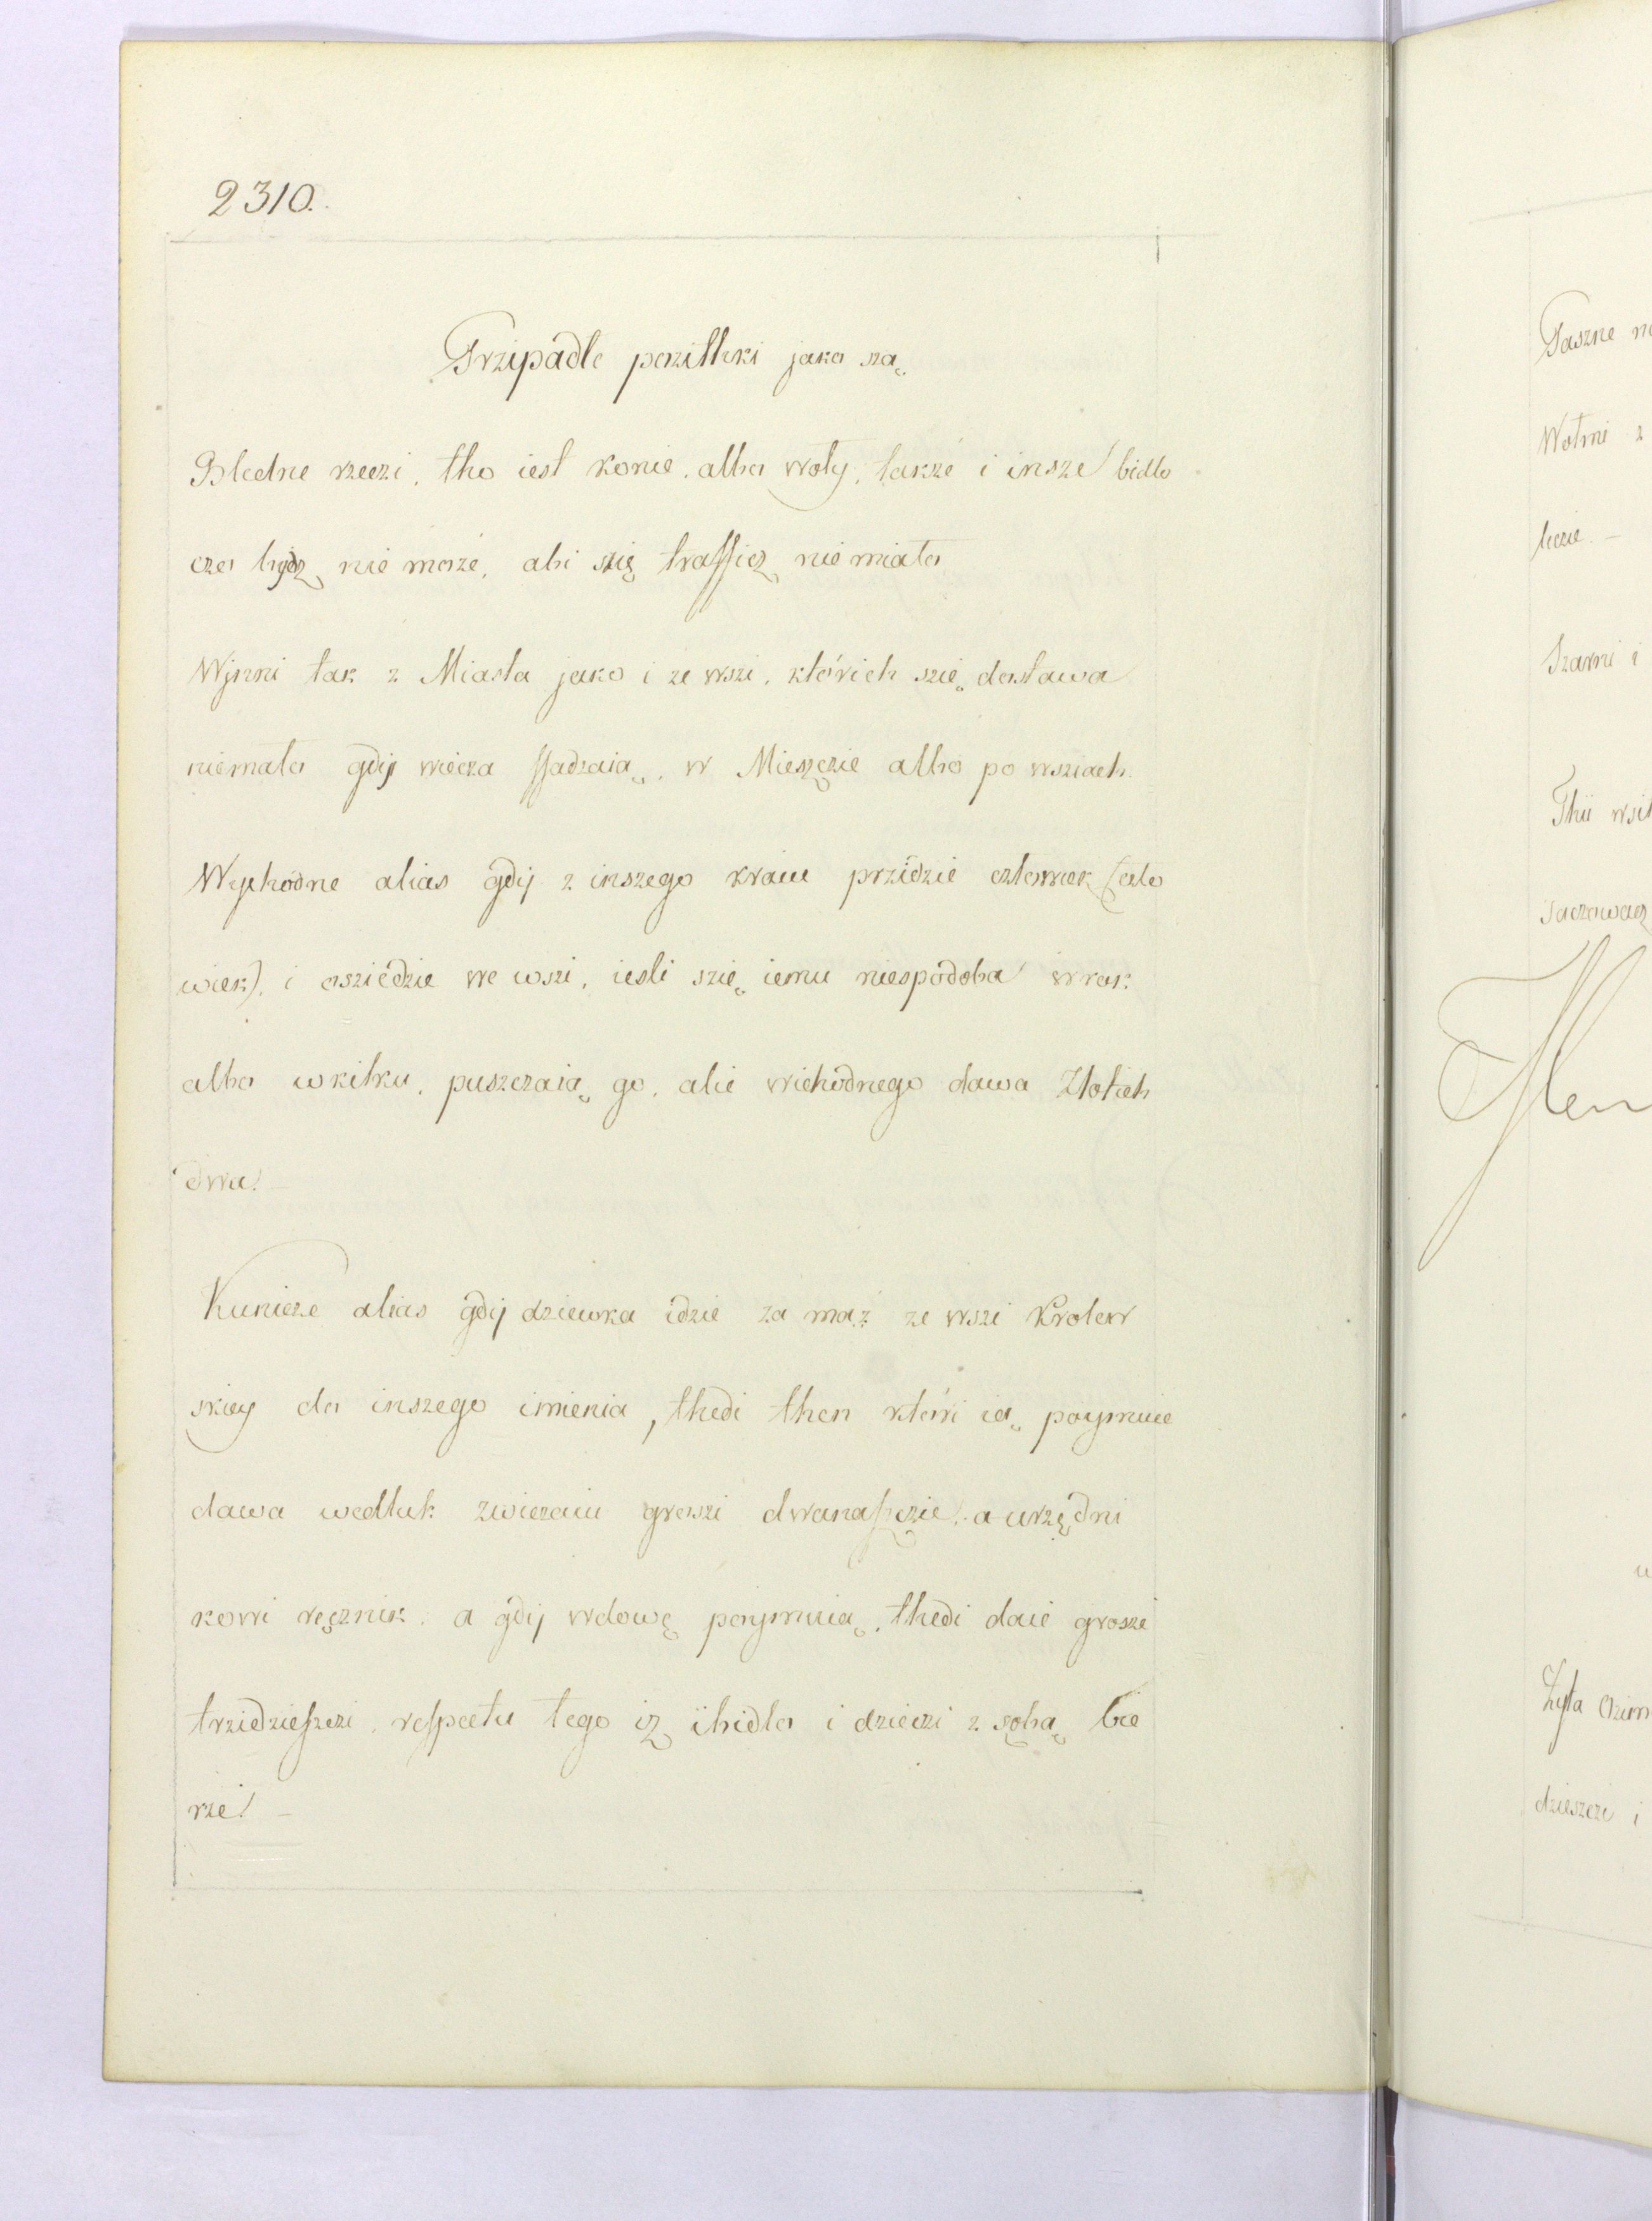 2310.
Przipadłe pożithki jako są
Błedne rzeczi, tho iest konie, albo woły, takze i insze bidło
czo bydz nie moze, abi się traffiez nie miało
Wjnni tak z Miasta jako i ze wszi, którich szię dostawa
niemało gdij wiecza ssadzaią, w Mieszczie albo po wsziach.
Wychodne alias gdij z inszego kraiu przidzie człowiek (czło
wiek), i osziedzie we wszi, iesli szię iemu niespodoba w rok
albo w kilku, puszczaią go, alie wichodnego dawa Złotich
dwa. –
Kunicze alias gdij dziewka idzie za mąz ze wszi Krolew
skiey do inszego imienia, thedi then któri ią poymuie
dawa wedłuk zwiczaiu groszi dwanaszczie, a urzędni
kowi ręcznik. a gdij wdowę poymuią, thedi daie groszi
trzidzieszczi, respectu tego iz ibidło i dzieczi z sobą bie
rze. –
Paszne
Wołmi z
liczie. –
Szarmi i
Thii
saczowacz
Żyta Ozim
dzieszczi i